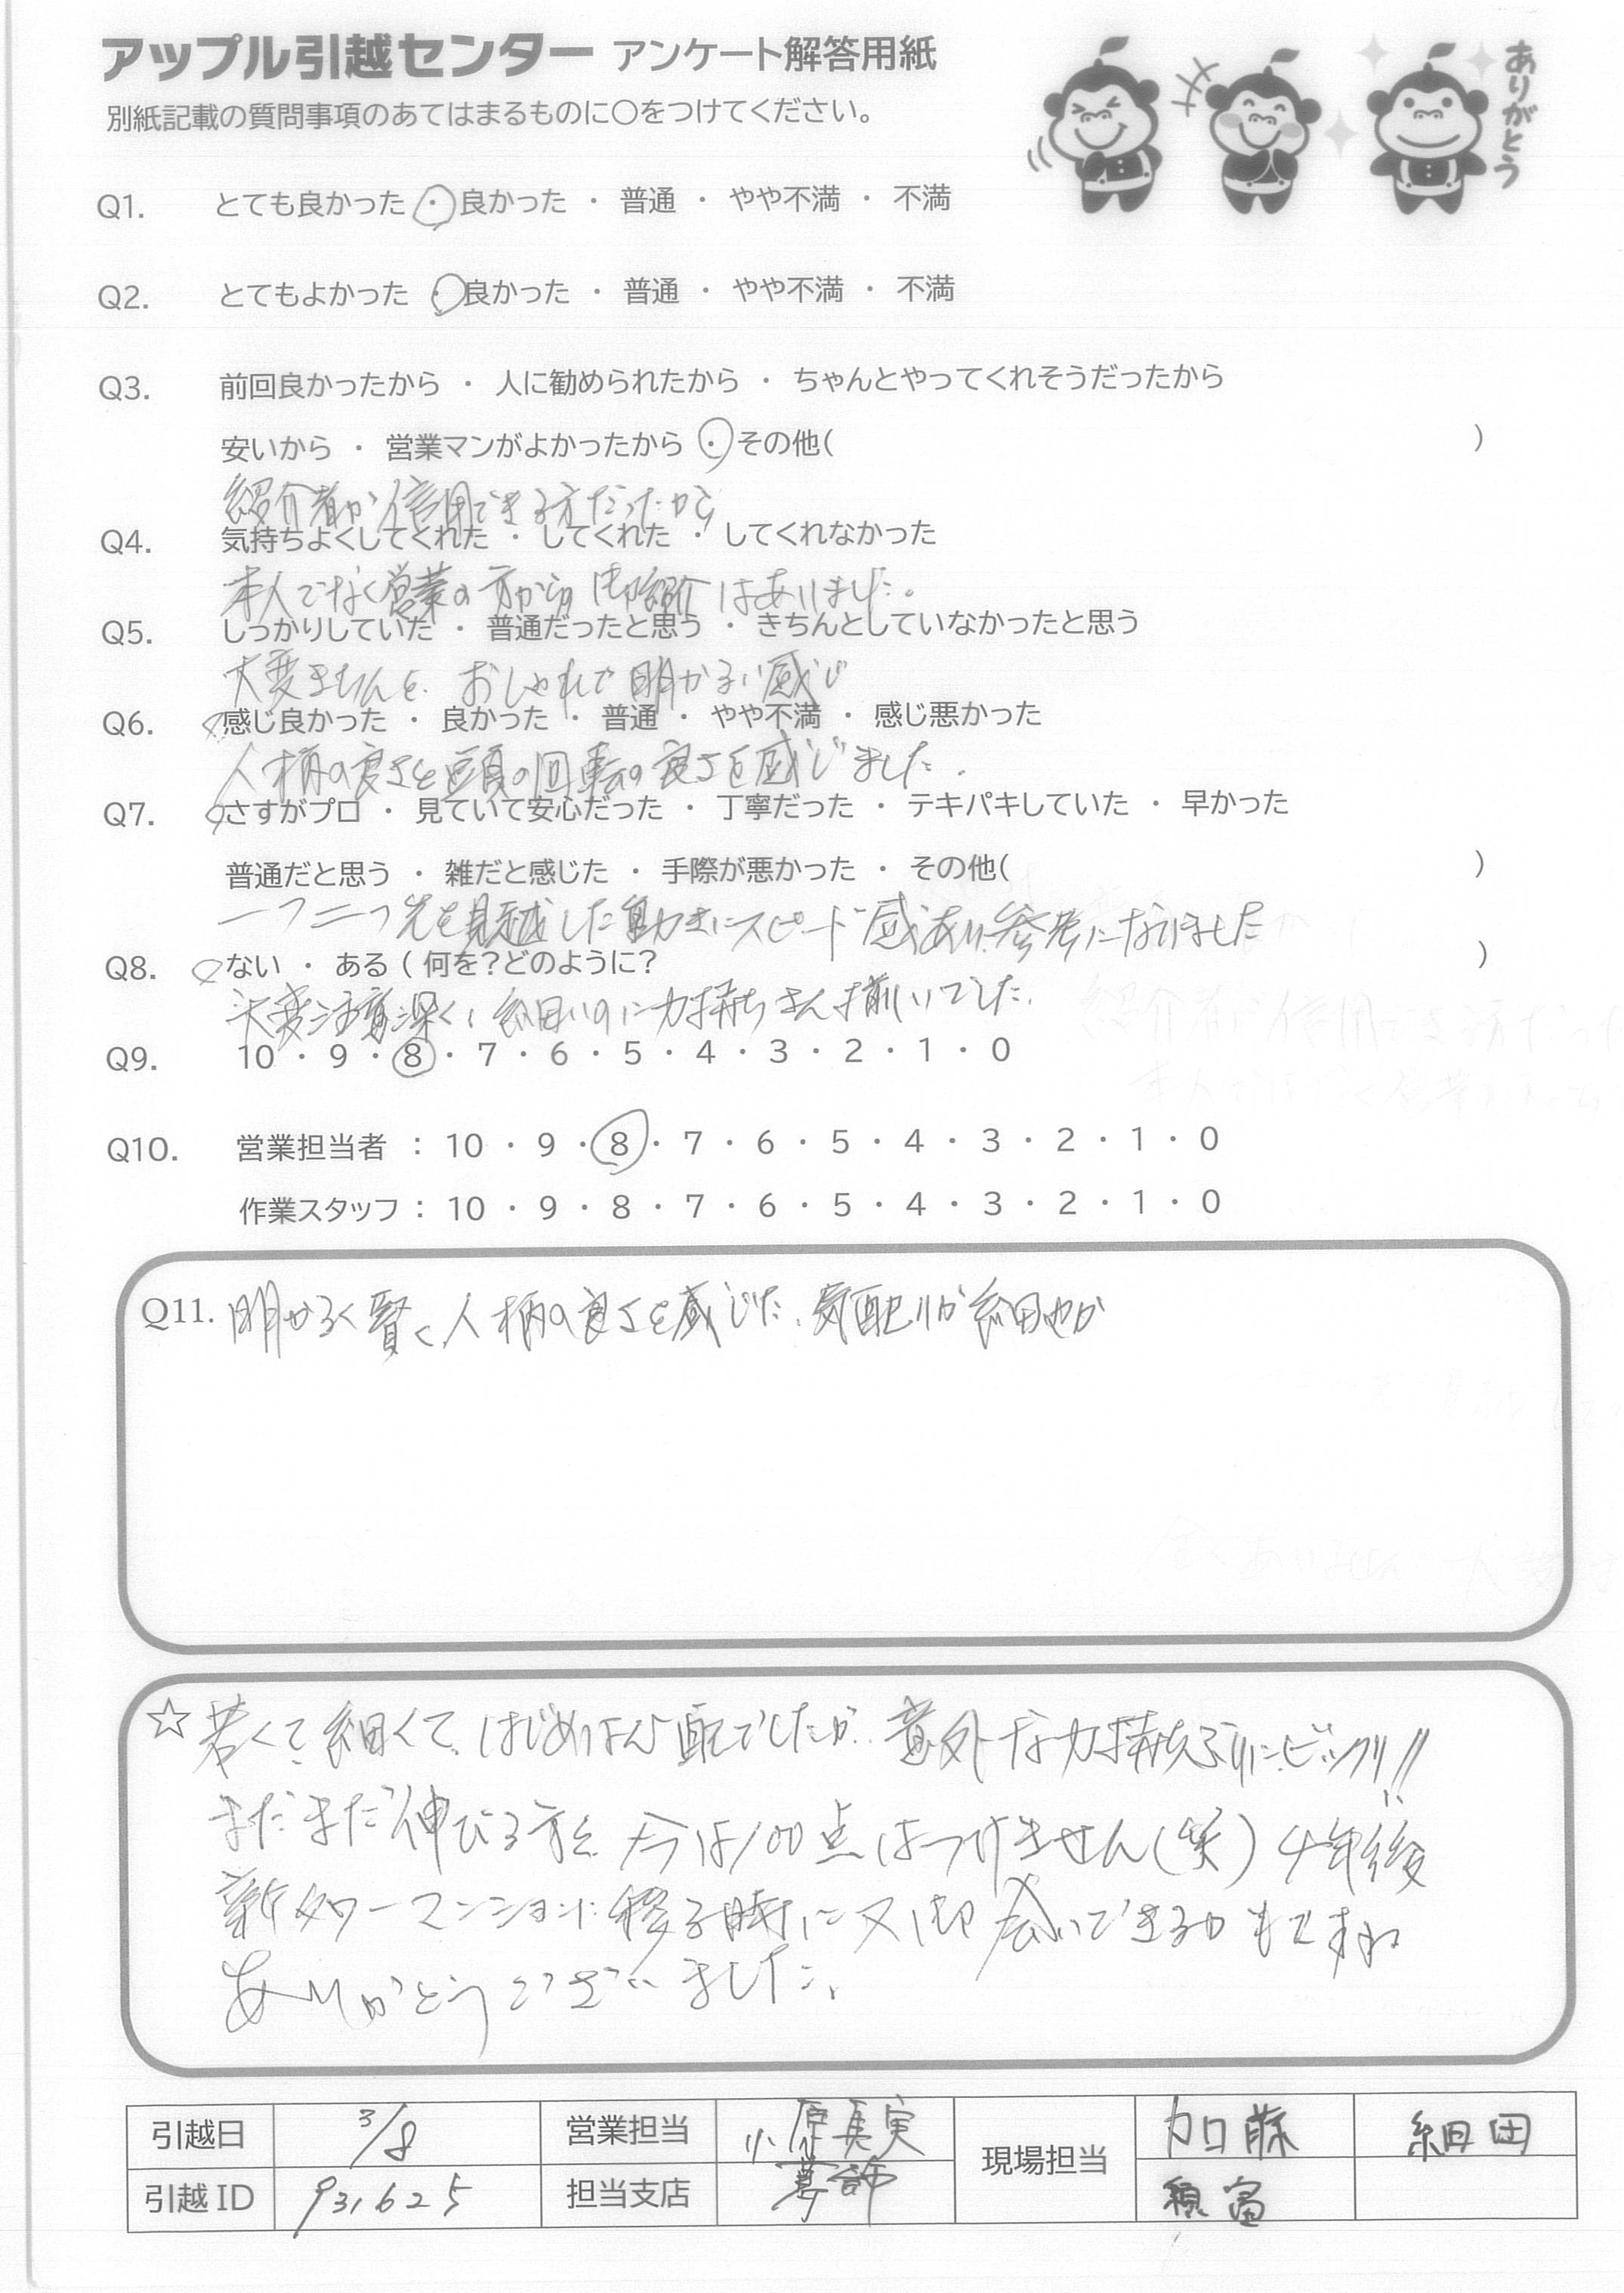 アップル引越センター アンケート解答用紙
別紙記載の質問事項のあてはまるものに〇をつけてください。
ありがとう
Q1. とても良かった ・ 良かった ・ 普通 ・ やや不満 ・ 不満
Q2. とてもよかった ・ 良かった ・ 普通 ・ やや不満 ・ 不満
Q3. 前回良かったから ・ 人に勧められたから ・ ちゃんとやってくれそうだったから
安いから ・ 営業マンがよかったから ・ その他( )
紹介者が信用できる方だったから
Q4. 気持ちよくしてくれた ・ してくれた ・ してくれなかった
本人でなく営業の方から御紹介はありました。
Q5. しっかりしていた ・ 普通だったと思う ・ きちんとしていなかったと思う
大変きちんと、おしゃれで明かるい感じ
Q6. 感じ良かった ・ 良かった ・ 普通 ・ やや不満 ・ 感じ悪かった
人柄の良さと頭の回転の良さを感じました.
Q7. さすがプロ ・ 見ていて安心だった ・ 丁寧だった ・ テキパキしていた ・ 早かった
普通だと思う ・ 雑だと感じた ・ 手際が悪かった ・ その他( )
一つ二つ先を見越した動きにスピード感あり、参考になりました
Q8. ない ・ ある ( 何を?どのように? )
大変注意深く、細いのに力持ちさん揃いでした.
Q9. 10 ・ 9 ・ 8 ・ 7 ・ 6 ・ 5 ・ 4 ・ 3 ・ 2 ・ 1 ・ 0
Q10. 営業担当者 : 10 ・ 9 ・ 8 ・ 7 ・ 6 ・ 5 ・ 4 ・ 3 ・ 2 ・ 1 ・ 0
作業スタッフ : 10 ・ 9 ・ 8 ・ 7 ・ 6 ・ 5 ・ 4 ・ 3 ・ 2 ・ 1 ・ 0
Q11. 明かるく賢く、人柄の良さを感じた、気配りが細やか
☆ 若くて、細くて、はじめは心配でしたが、意外な力持ちぶりにビックリ!!
まだまだ伸びる方と、今は100点はつけません(笑) 4年後
新タワーマンションに移る時に又御会いできるかもですね
ありがとうございました.
引越日 3/8 営業担当 小原真実 現場担当 加藤 細田
引越ID 931625 担当支店